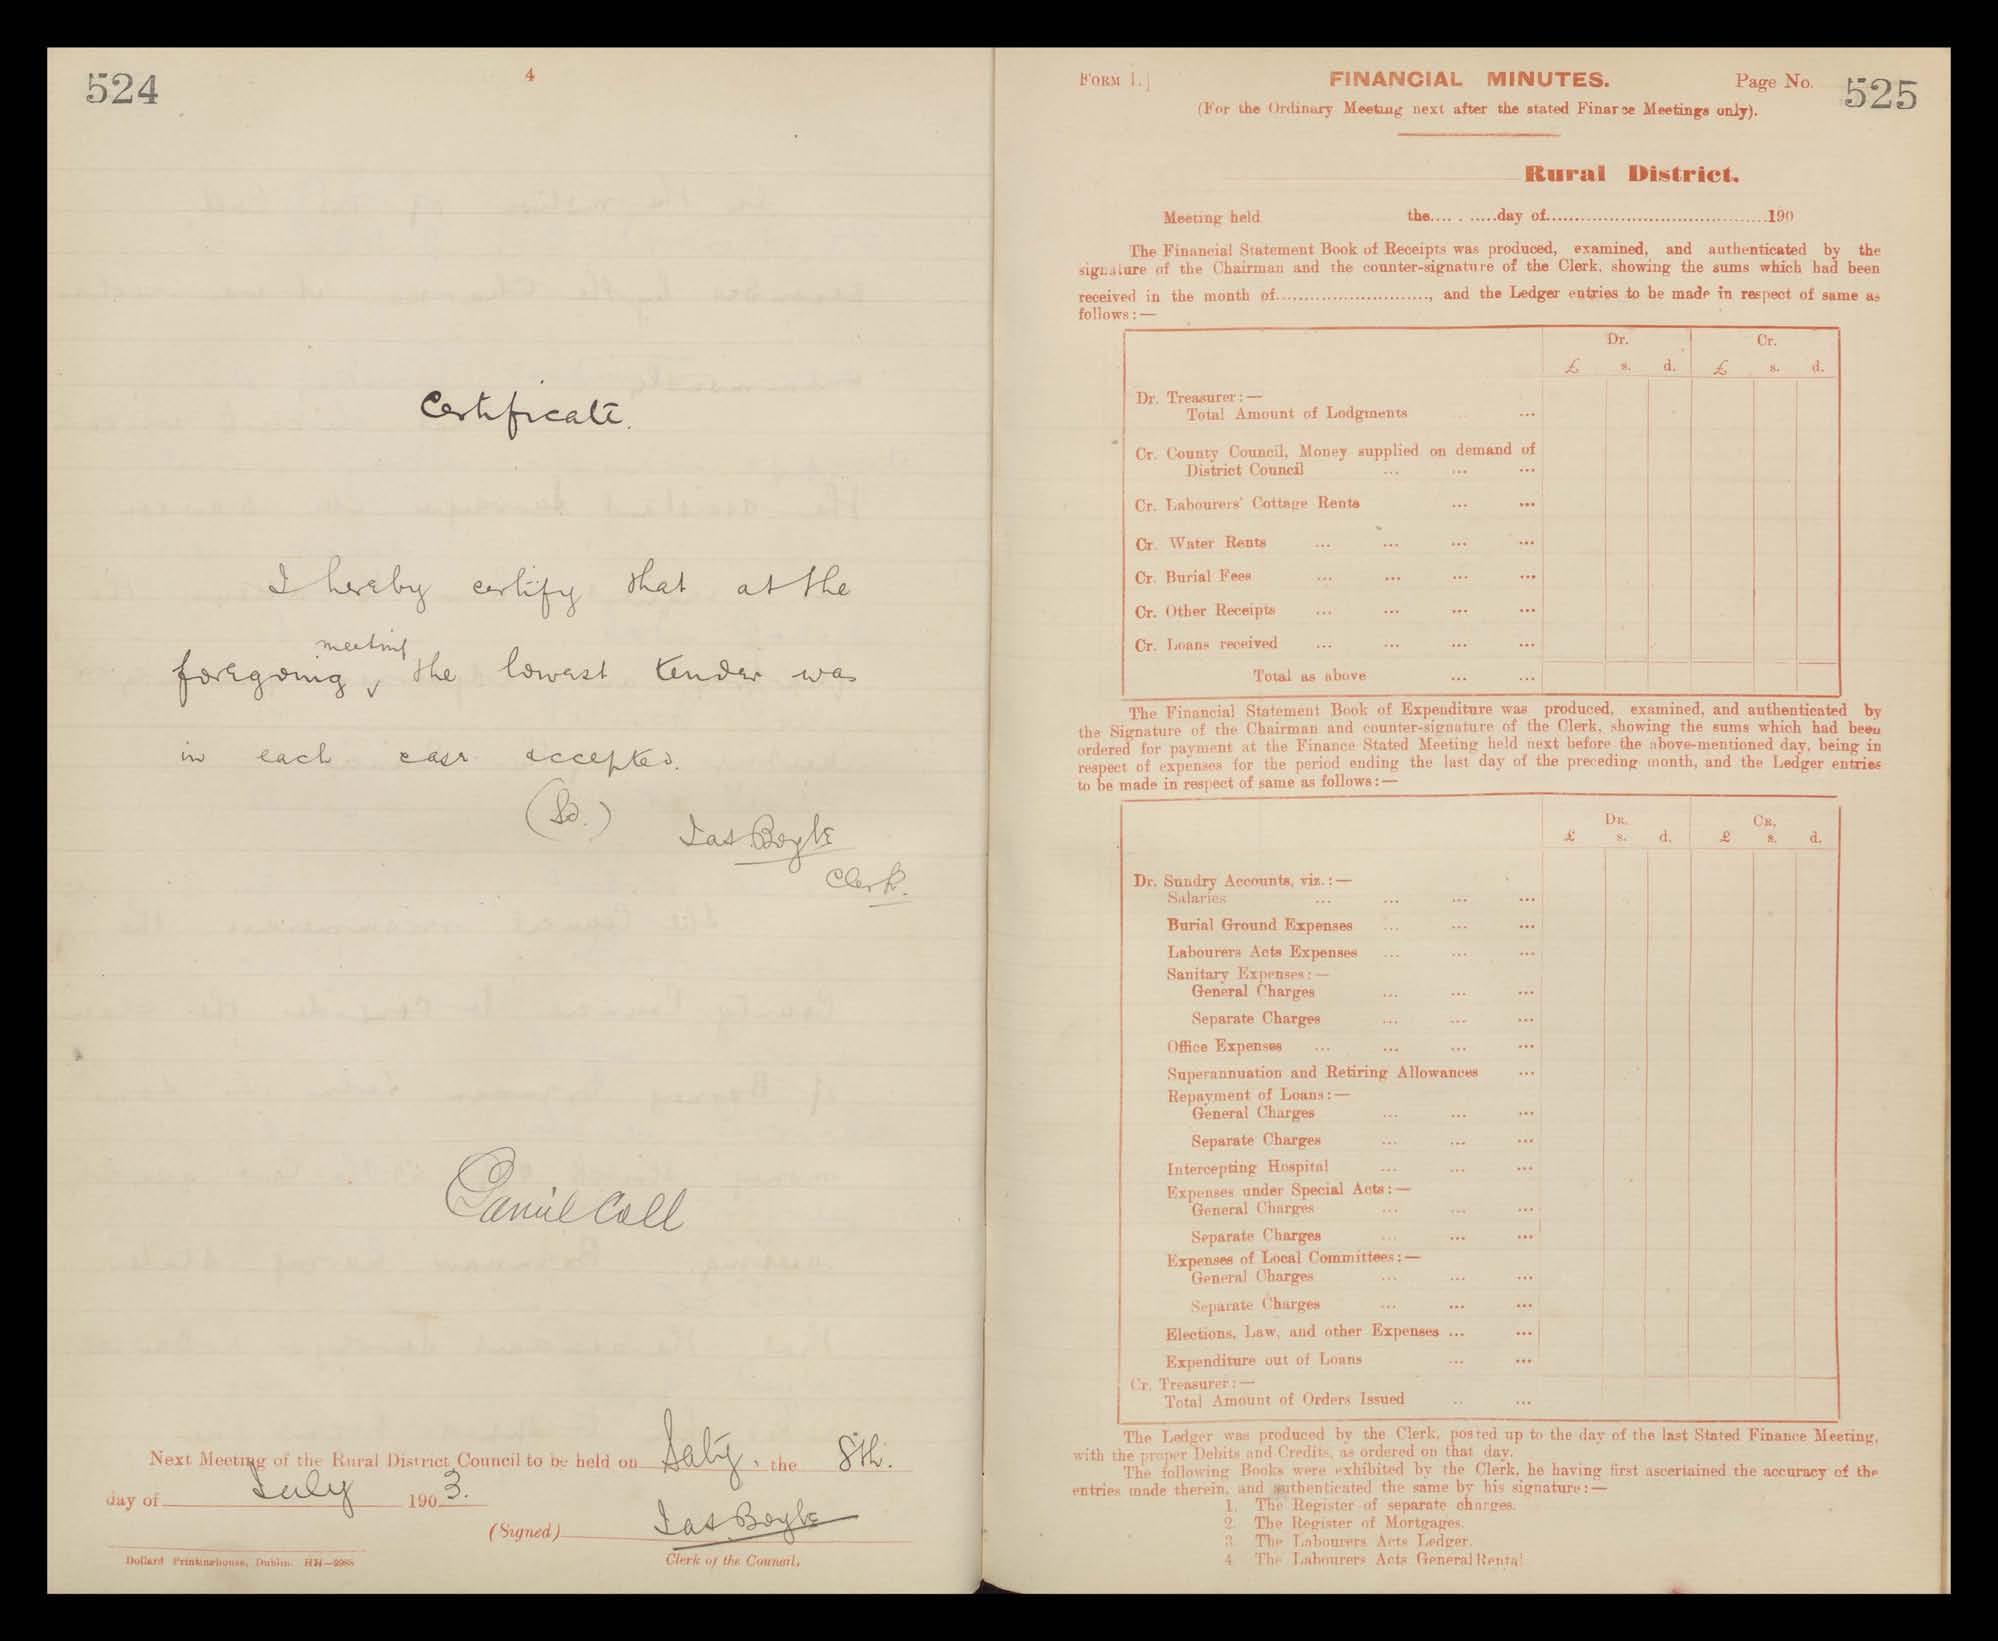 524
4
Certificate.
I hereby certify that at the
meeting
foregoing, the lowest tender was
in each case accepted.
(Sd.)
Jas Boyle
Clerk.
Daniel Coll
Next Meeting of the Rural District Council to be held on Saty, the 8th.
day of July 1903.
(Signed) Jas Boyle
Clerk of the Council.
Dollard Printinghouse, Dublin.
FORM 1.] FINANCIAL MINUTES. Page No. 525
(For the Ordinary Meeting next after the stated Finance Meetings only).
Rural District.
Meeting held the...........day of..........................................190
The Financial Statement Book of Receipts was produced, examined, and authenticated by the
signature of the Chairman and the counter-signature of the Clerk, showing the sums which had been
received in the month of............................, and the Ledger entries to be made in respect of same as
follows:—
Dr. Cr.
£ s. d. £ s. d.
Dr. Treasurer:—
Total Amount of Lodgments ...
Cr. County Council, Money supplied on demand of
District Council ... ... ...
Cr. Labourers' Cottage Rents ... ...
Cr. Water Rents ... ... ... ...
Cr. Burial Fees ... ... ... ...
Cr. Other Receipts ... ... ... ...
Cr. Loans received ... ... ... ...
Total as above ... ...
The Financial Statement Book of Expenditure was produced, examined, and authenticated by
the Signature of the Chairman and counter-signature of the Clerk, showing the sums which had been
ordered for payment at the Finance Stated Meeting held next before the above-mentioned day, being in
respect of expenses for the period ending the last day of the preceding month, and the Ledger entries
to be made in respect of same as follows:—
DR. CR,
£ s. d. £ s. d.
Dr. Sundry Accounts, viz.:—
Salaries ... ... ... ...
Burial Ground Expenses ... ... ...
Labourers Acts Expenses ... ... ...
Sanitary Expenses:—
General Charges ... ... ...
Separate Charges ... ... ...
Office Expenses ... ... ... ...
Superannuation and Retiring Allowances ...
Repayment of Loans:—
General Charges ... ... ...
Separate Charges ... ... ...
Intercepting Hospital ... ... ...
Expenses under Special Acts:—
General Charges ... ... ...
Separate Charges ... ... ...
Expenses of Local Committees:—
General Charges ... ... ...
Separate Charges ... ... ...
Elections, Law, and other Expenses ... ...
Expenditure out of Loans ... ...
Cr. Treasurer:—
Total Amount of Orders Issued .. ...
The Ledger was produced by the Clerk, posted up to the day of the last Stated Finance Meeting,
with the proper Debits and Credits, as ordered on that day.
The following Books were exhibited by the Clerk, he having first ascertained the accuracy of the
entries made therein, and authenticated the same by his signature:—
1. The Register of separate charges.
2. The Register of Mortgages.
3. The Labourers Acts Ledger.
4. The Labourers Acts General Rental